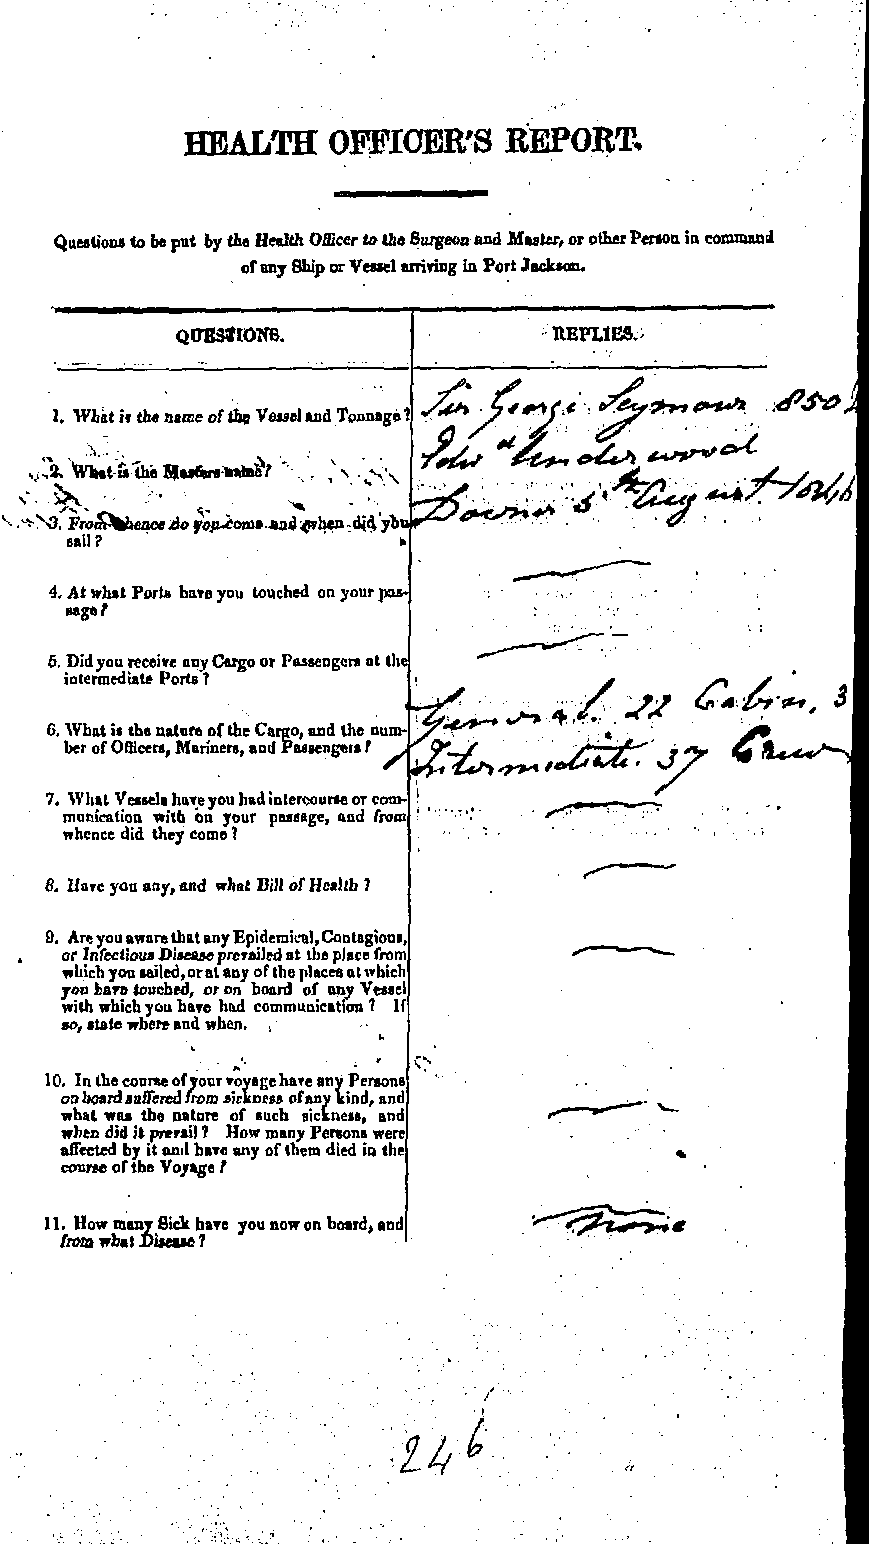 HEALTH OFFICER'S REPORT.
Questions to be put by the Health Officer to the Surgeon and Master, or other Person in command
of any Ship or Vessel arriving in Port Jackson.
QUESTIONS.
REPLIES.
1. What is the name of the Vessel and Tonnage?
Sir George Seymour 850
2. What is the Masters name?
Edwd Underwood
3. From whence do you come and when did you
sail?
Downs 5th August 1846
4. At what Ports have you touched on your pas-
sage?
5. Did you receive any Cargo or Passengers at the
intermediate Ports?
6. What is the nature of the Cargo, and the num-
ber of Officers, Mariners, and Passengers?
General. 22 Cabin, 3
Intermediate. 37 Crew
7. What Vessels have you had intercourse or com-
munication with on your passage, and from
whence did they come?
8. Have you any, and what Bill of Health?
9. Are you aware that any Epidemical, Contagious,
or Infectious Disease prevailed at the place from
which you sailed, or at any of the places at which
you have touched, or on board of any Vessel
with which you have had communication? If
so, state where and when.
10. In the course of your voyage have any Persons
on board suffered from sickness of any kind, and
what was the nature of such sickness, and
when did it prevail? How many Persons were
affected by it and have any of them died in the
course of the Voyage?
11. How many Sick have you now on board, and
from what Disease?
None
246